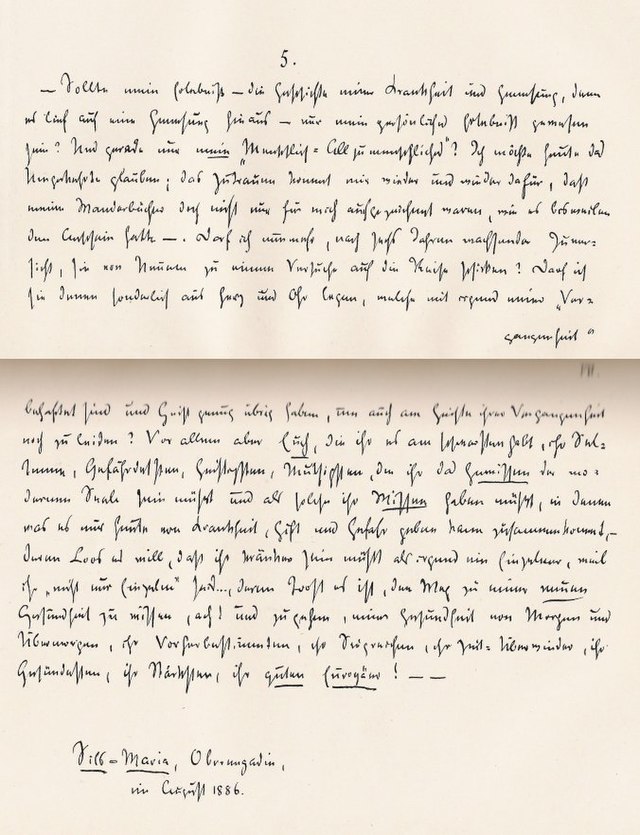 5.
— Sollte mein Erlebniß — die Geschichte einer Krankheit und Genesung, denn
es lief auf eine Genesung hinaus — nur mein persönliches Erlebniß gewesen
sein? Und gerade nur mein „Menschlich-Allzumenschliches"? Ich möchte heute das
Umgekehrte glauben; das Zutrauen kommt mir wieder und wieder dafür, daß
meine Wanderbücher doch nicht nur für mich aufgezeichnet waren, wie es bisweilen
den Anschein hatte —. Darf ich nunmehr, nach sechs Jahren wachsender Zuver-
sicht, sie von Neuem zu einem Versuche auf die Reise schicken? Darf ich
sie Denen sonderlich ans Herz und Ohr legen, welche mit irgend einer „Ver-
gangenheit"
behaftet sind und Geist genug übrig haben, um auch am Geiste ihrer Vergangenheit
noch zu leiden? Vor allem aber Euch, die ihr es am schwersten habt, ihr Sel-
tenen, Gefährdetsten, Geistigsten, Muthigsten, die ihr das Gewissen der mo-
dernen Seele sein müßt und als solche ihr Wissen haben müßt, in denen
was es nur heute von Krankheit, Gift und Gefahr geben kann zusammenkommt, —
deren Loos es will, daß ihr kränker sein müßt als irgend ein Einzelner, weil
ihr „nicht nur Einzelne" seid..., deren Trost es ist, den Weg zu einer neuen
Gesundheit zu wissen, ach! und zu gehen, einer Gesundheit von Morgen und
Übermorgen, ihr Vorherbestimmten, ihr Siegreichen, ihr Zeit-Überwinder, ihr
Gesündesten, ihr Stärksten, ihr guten Europäer! — —
Sils-Maria, Oberengadin,
im August 1886.